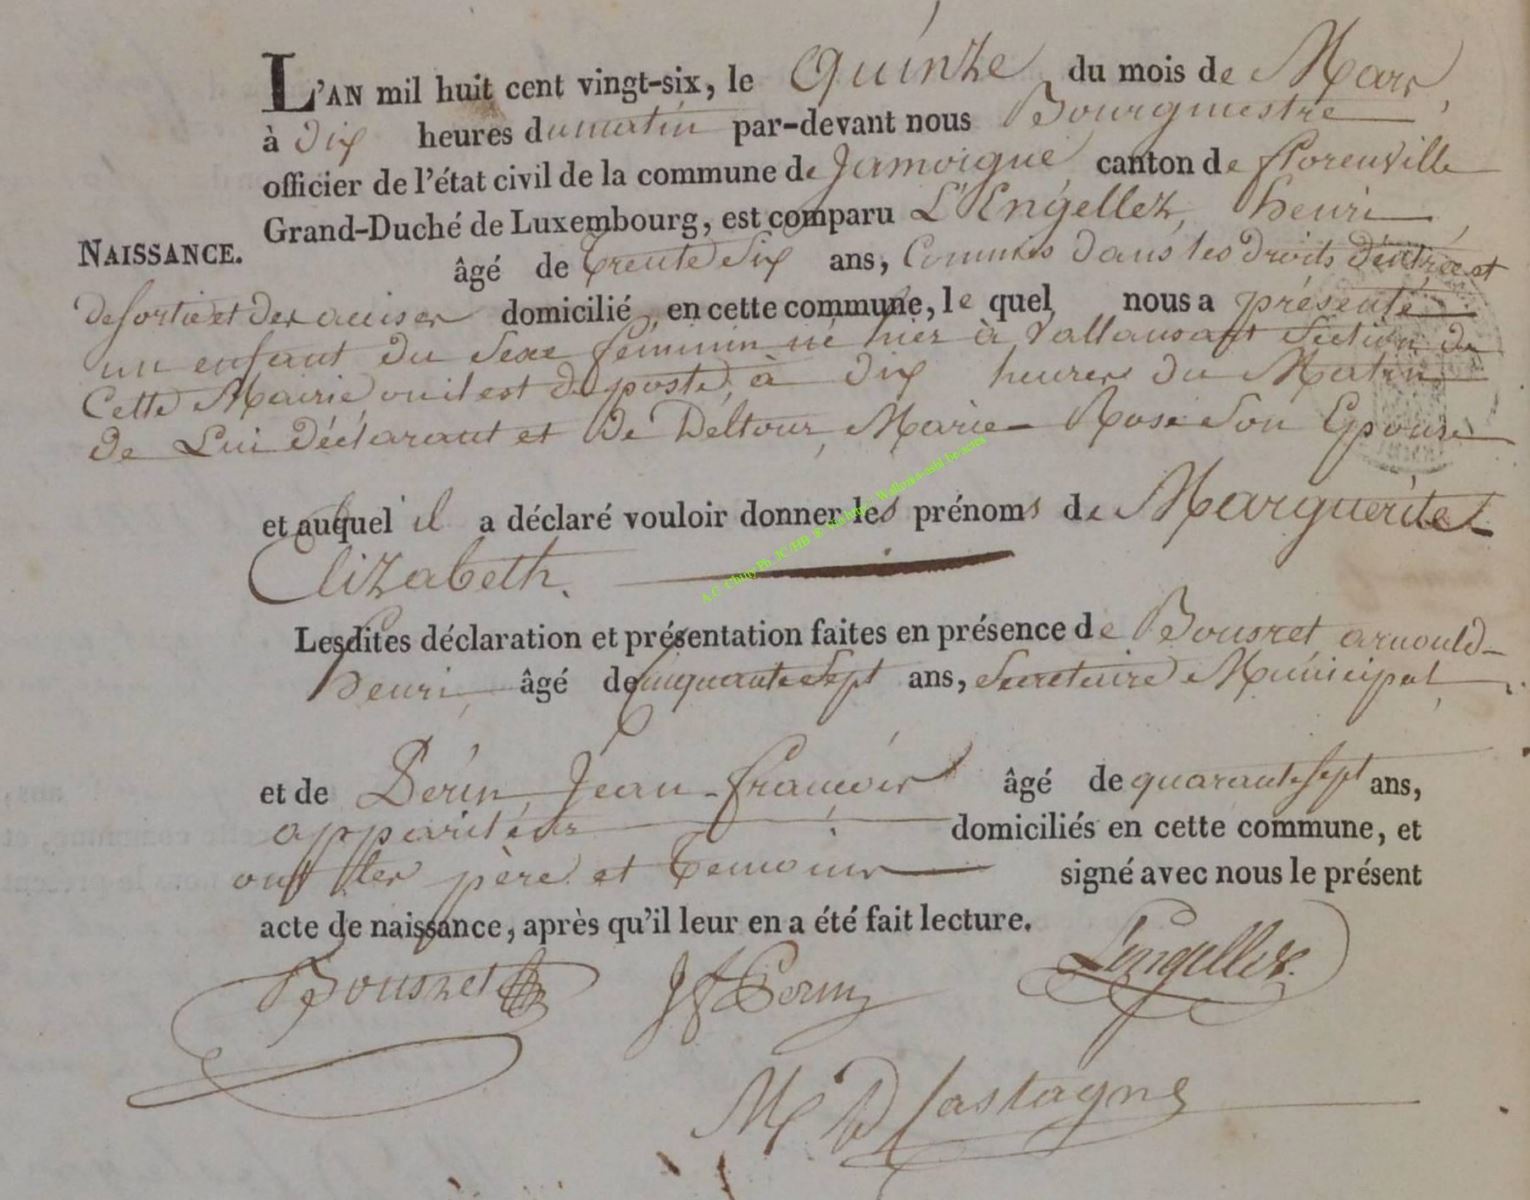 L'AN mil huit cent vingt-six, le Quinze du mois de Mars
à dix heures du matin par-devant nous Bourgmestre
officier de l'état civil de la commune de Jamoigne canton de florenville
Grand-Duché de Luxembourg, est comparu L'Engellez, henri
NAISSANCE.
âgé de trente Six ans, Commis dans les droits d'entrée et
de sortie et des accises domicilié en cette commune, le quel nous a présenté
un enfant du Sexe feminin né hier à Vallansart Section de
Cette Mairie ou il est deposté, à dix heures du Matin
de Lui déclarant et de Deltour, Marie-Rose Son Epouse
et auquel il a déclaré vouloir donner les prénoms de Marguerite
Elizabeth.
Lesdites déclaration et présentation faites en présence de Bousret arnould-
henri âgé de cinquante Sept ans, Secretaire Municipal
et de Jean-françois âgé de quarante Sept ans,
appariteur domiciliés en cette commune, et
ont les père et temoins signé avec nous le présent
acte de naissance, après qu'il leur en a été fait lecture.
Bousret Lengellez
M D Castagne